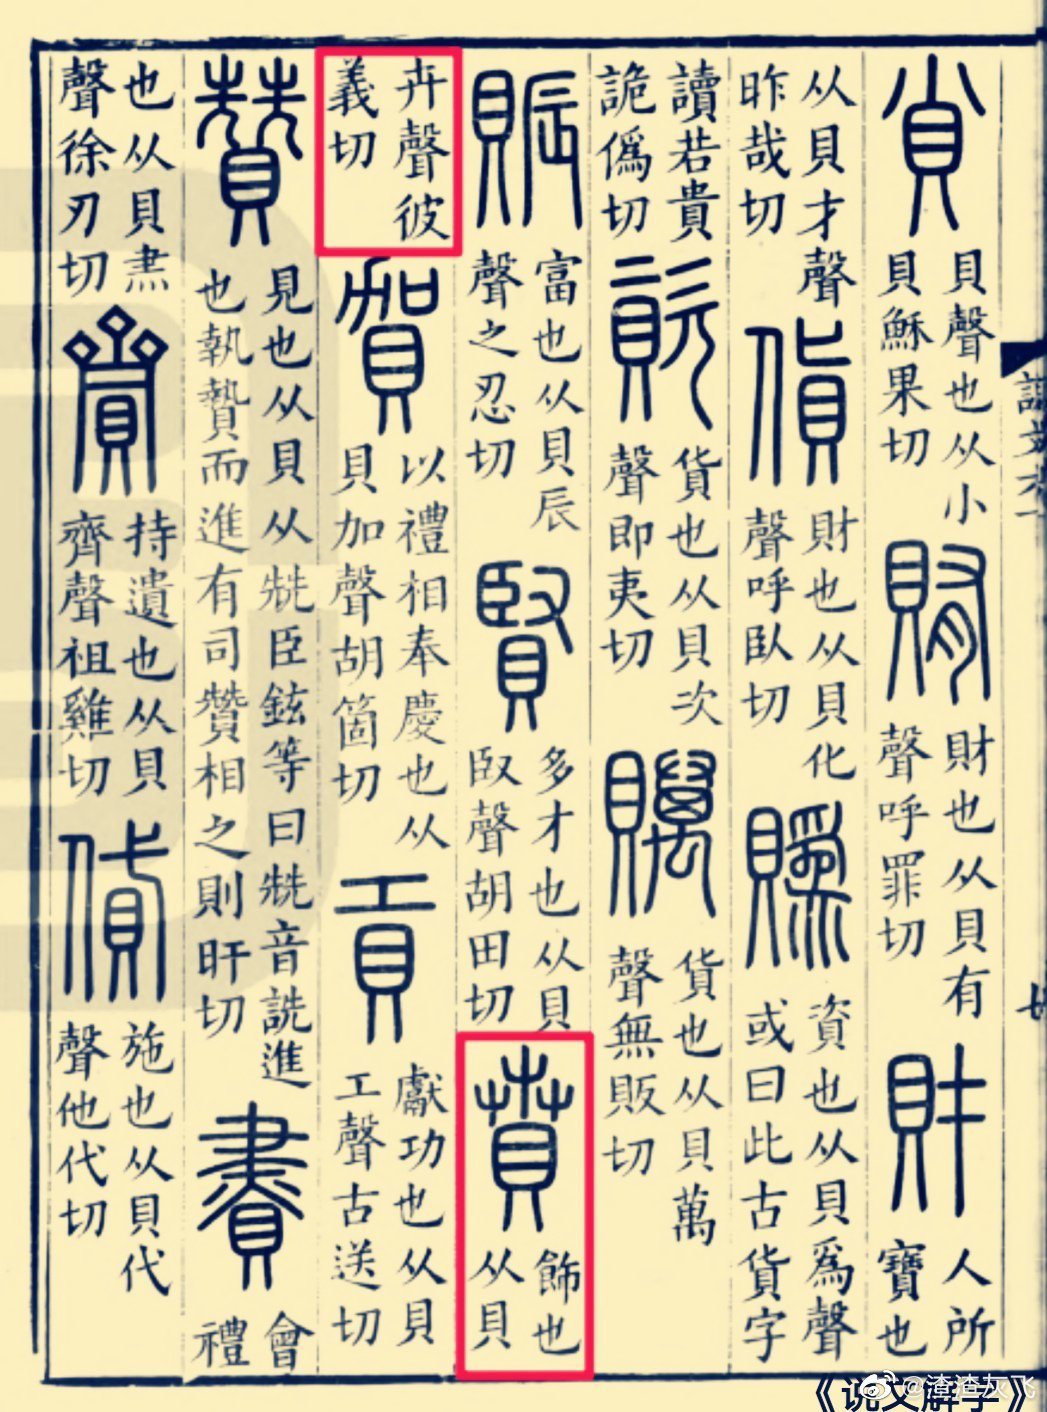 𧴪
貝聲也从小
貝穌果切
賄
財也从貝有
聲呼罪切
財
人所
寶也
从貝才聲
昨哉切
貨
財也从貝化
聲呼臥切
䞈
資也从貝爲聲
或曰此古貨字
讀若貴
詭僞切
資
貨也从貝次
聲即夷切
贎
貨也从貝萬
聲無販切
賑
富也从貝辰
聲之忍切
賢
多才也从貝
臤聲胡田切
賁
飾也
从貝
卉聲彼
義切
賀
以禮相奉慶也从
貝加聲胡箇切
貢
獻功也从貝
工聲古送切
贊
見也从貝从兟臣鉉等曰兟音詵進
也執贄而進有司贊相之則旰切
賮
會
禮
也从貝㶳
聲徐刃切
齎
持遺也从貝
齊聲祖雞切
貸
施也从貝代
聲他代切
《说文解字》
@渣渣灰飞